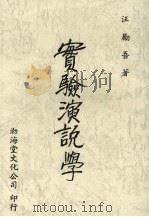 汪勵吾著
實驗演說學
渤海堂文化公司印行